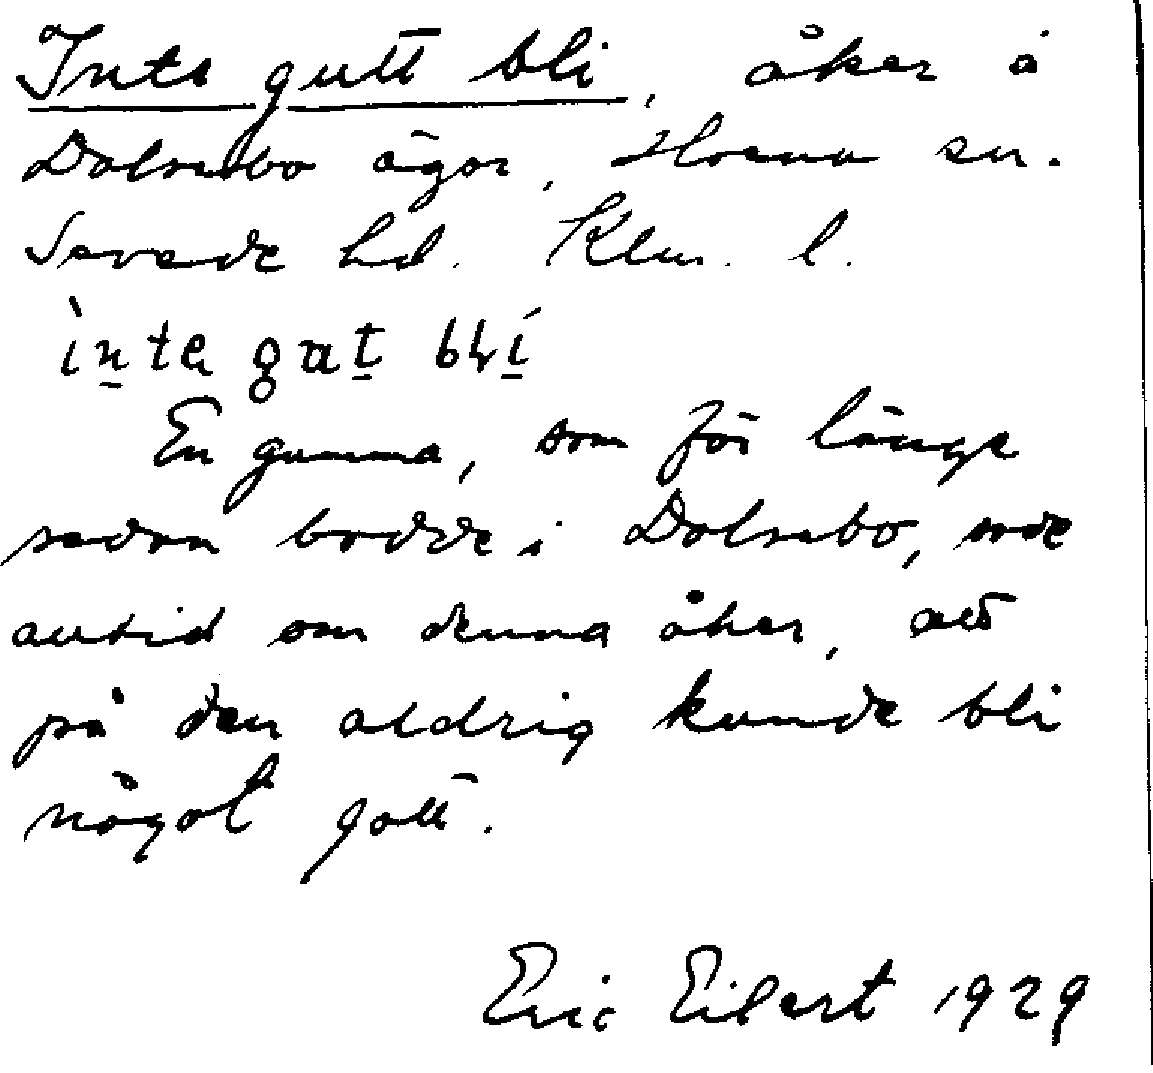 Inte gutt bli, åker å
Dalsebo ägor, Hvena sn.
Sevede hd. Klm. l.
En gumma, som för länge
sedan bodde i Dalsebo, sade
alltid om denna åker, att
på den aldrig kunde bli
något gott.
Eric Eilert 1929